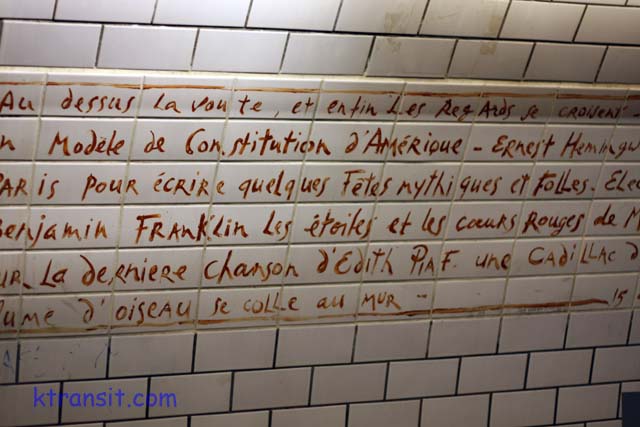 Au dessus la voute, et enfin les regards se croisent -
n Modèle de Constitution d'Amérique - Ernest Hemingw
Paris pour écrire quelques Fêtes mythiques et Folles. Elec
Benjamin Franklin les étoiles et les cœurs rouges de M
ur la dernière chanson d'Edith Piaf. une Cadillac d
lume d'oiseau se colle au mur - 15
ktransit.com